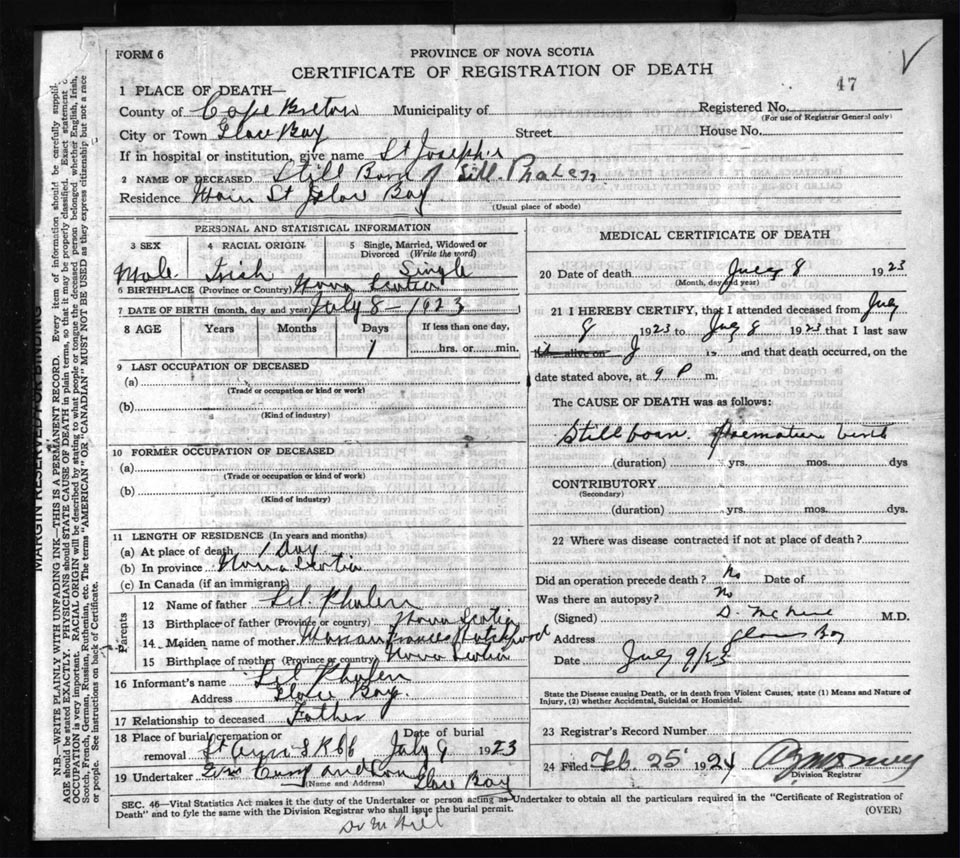 FORM 6
PROVINCE OF NOVA SCOTIA
CERTIFICATE OF REGISTRATION OF DEATH
47
1 PLACE OF DEATH—
County of Cape Breton Municipality of Registered No.
(For use of Registrar General only)
City or Town Glace Bay Street House No.
If in hospital or institution, give name St Joseph's
2 NAME OF DECEASED Still Born of Phalen
Residence Main St Glace Bay
(Usual place of abode)
PERSONAL AND STATISTICAL INFORMATION
3 SEX 4 RACIAL ORIGIN 5 Single, Married, Widowed or Divorced (Write the word)
Male Irish Single
6 BIRTHPLACE (Province or Country) Nova Scotia
7 DATE OF BIRTH (month, day and year) July 8 - 1923
8 AGE Years Months Days If less than one day,
1 hrs. or min.
9 LAST OCCUPATION OF DECEASED
(a)
(Trade or occupation or kind or work)
(b)
(Kind of industry)
10 FORMER OCCUPATION OF DECEASED
(a)
(Trade or occupation or kind or work)
(b)
(Kind of industry)
11 LENGTH OF RESIDENCE (In years and months)
(a) At place of death 1 Day
(b) In province Nova Scotia
(c) In Canada (if an immigrant)
Parents
12 Name of father Phalen
13 Birthplace of father (Province or country) Nova Scotia
14 Maiden name of mother Frances
15 Birthplace of mother (Province or country) Nova Scotia
16 Informant's name Phalen
Address Glace Bay.
17 Relationship to deceased Father
18 Place of burial, cremation or removal Date of burial
St Ann's July 9 1923
19 Undertaker and Son Glace Bay
(Name and Address)
MEDICAL CERTIFICATE OF DEATH
20 Date of death July 8 1923
(Month, day and year)
21 I HEREBY CERTIFY, that I attended deceased from July
8 1923 to July 8 1923 that I last saw
alive on 19 and that death occurred, on the
date stated above, at 9 P m.
The CAUSE OF DEATH was as follows:
Stillborn. Premature birth
(duration) yrs. mos. dys
CONTRIBUTORY
(Secondary)
(duration) yrs. mos. dys.
22 Where was disease contracted if not at place of death?
Did an operation precede death? No Date of
Was there an autopsy? No
(Signed) D. M.D.
Address Glace Bay
Date July 9/23
State the Disease causing Death, or in death from Violent Causes, state (1) Means and Nature of Injury, (2) whether Accidental, Suicidal or Homicidal.
23 Registrar's Record Number
24 Filed Feb. 25 1924
Division Registrar
SEC. 46—Vital Statistics Act makes it the duty of the Undertaker or person acting as Undertaker to obtain all the particulars required in the "Certificate of Registration of
Death" and to fyle the same with the Division Registrar who shall issue the burial permit. (OVER)
MARGIN RESERVED FOR BINDING
N.B.—WRITE PLAINLY WITH UNFADING INK—THIS IS A PERMANENT RECORD. Every item of information should be carefully supplied.
AGE should be stated EXACTLY. PHYSICIANS should STATE CAUSE OF DEATH in plain terms, so that it may be properly classified. Exact statement
OCCUPATION is very important. RACIAL ORIGIN will be described by stating to what people or tongue the deceased person belonged whether English, Irish,
Scotch, French, German, Russian, Ruthenian, etc. The terms "AMERICAN" OR "CANADIAN" MUST NOT BE USED as they express citizenship but not a race
or people. See instructions on back of Certificate.